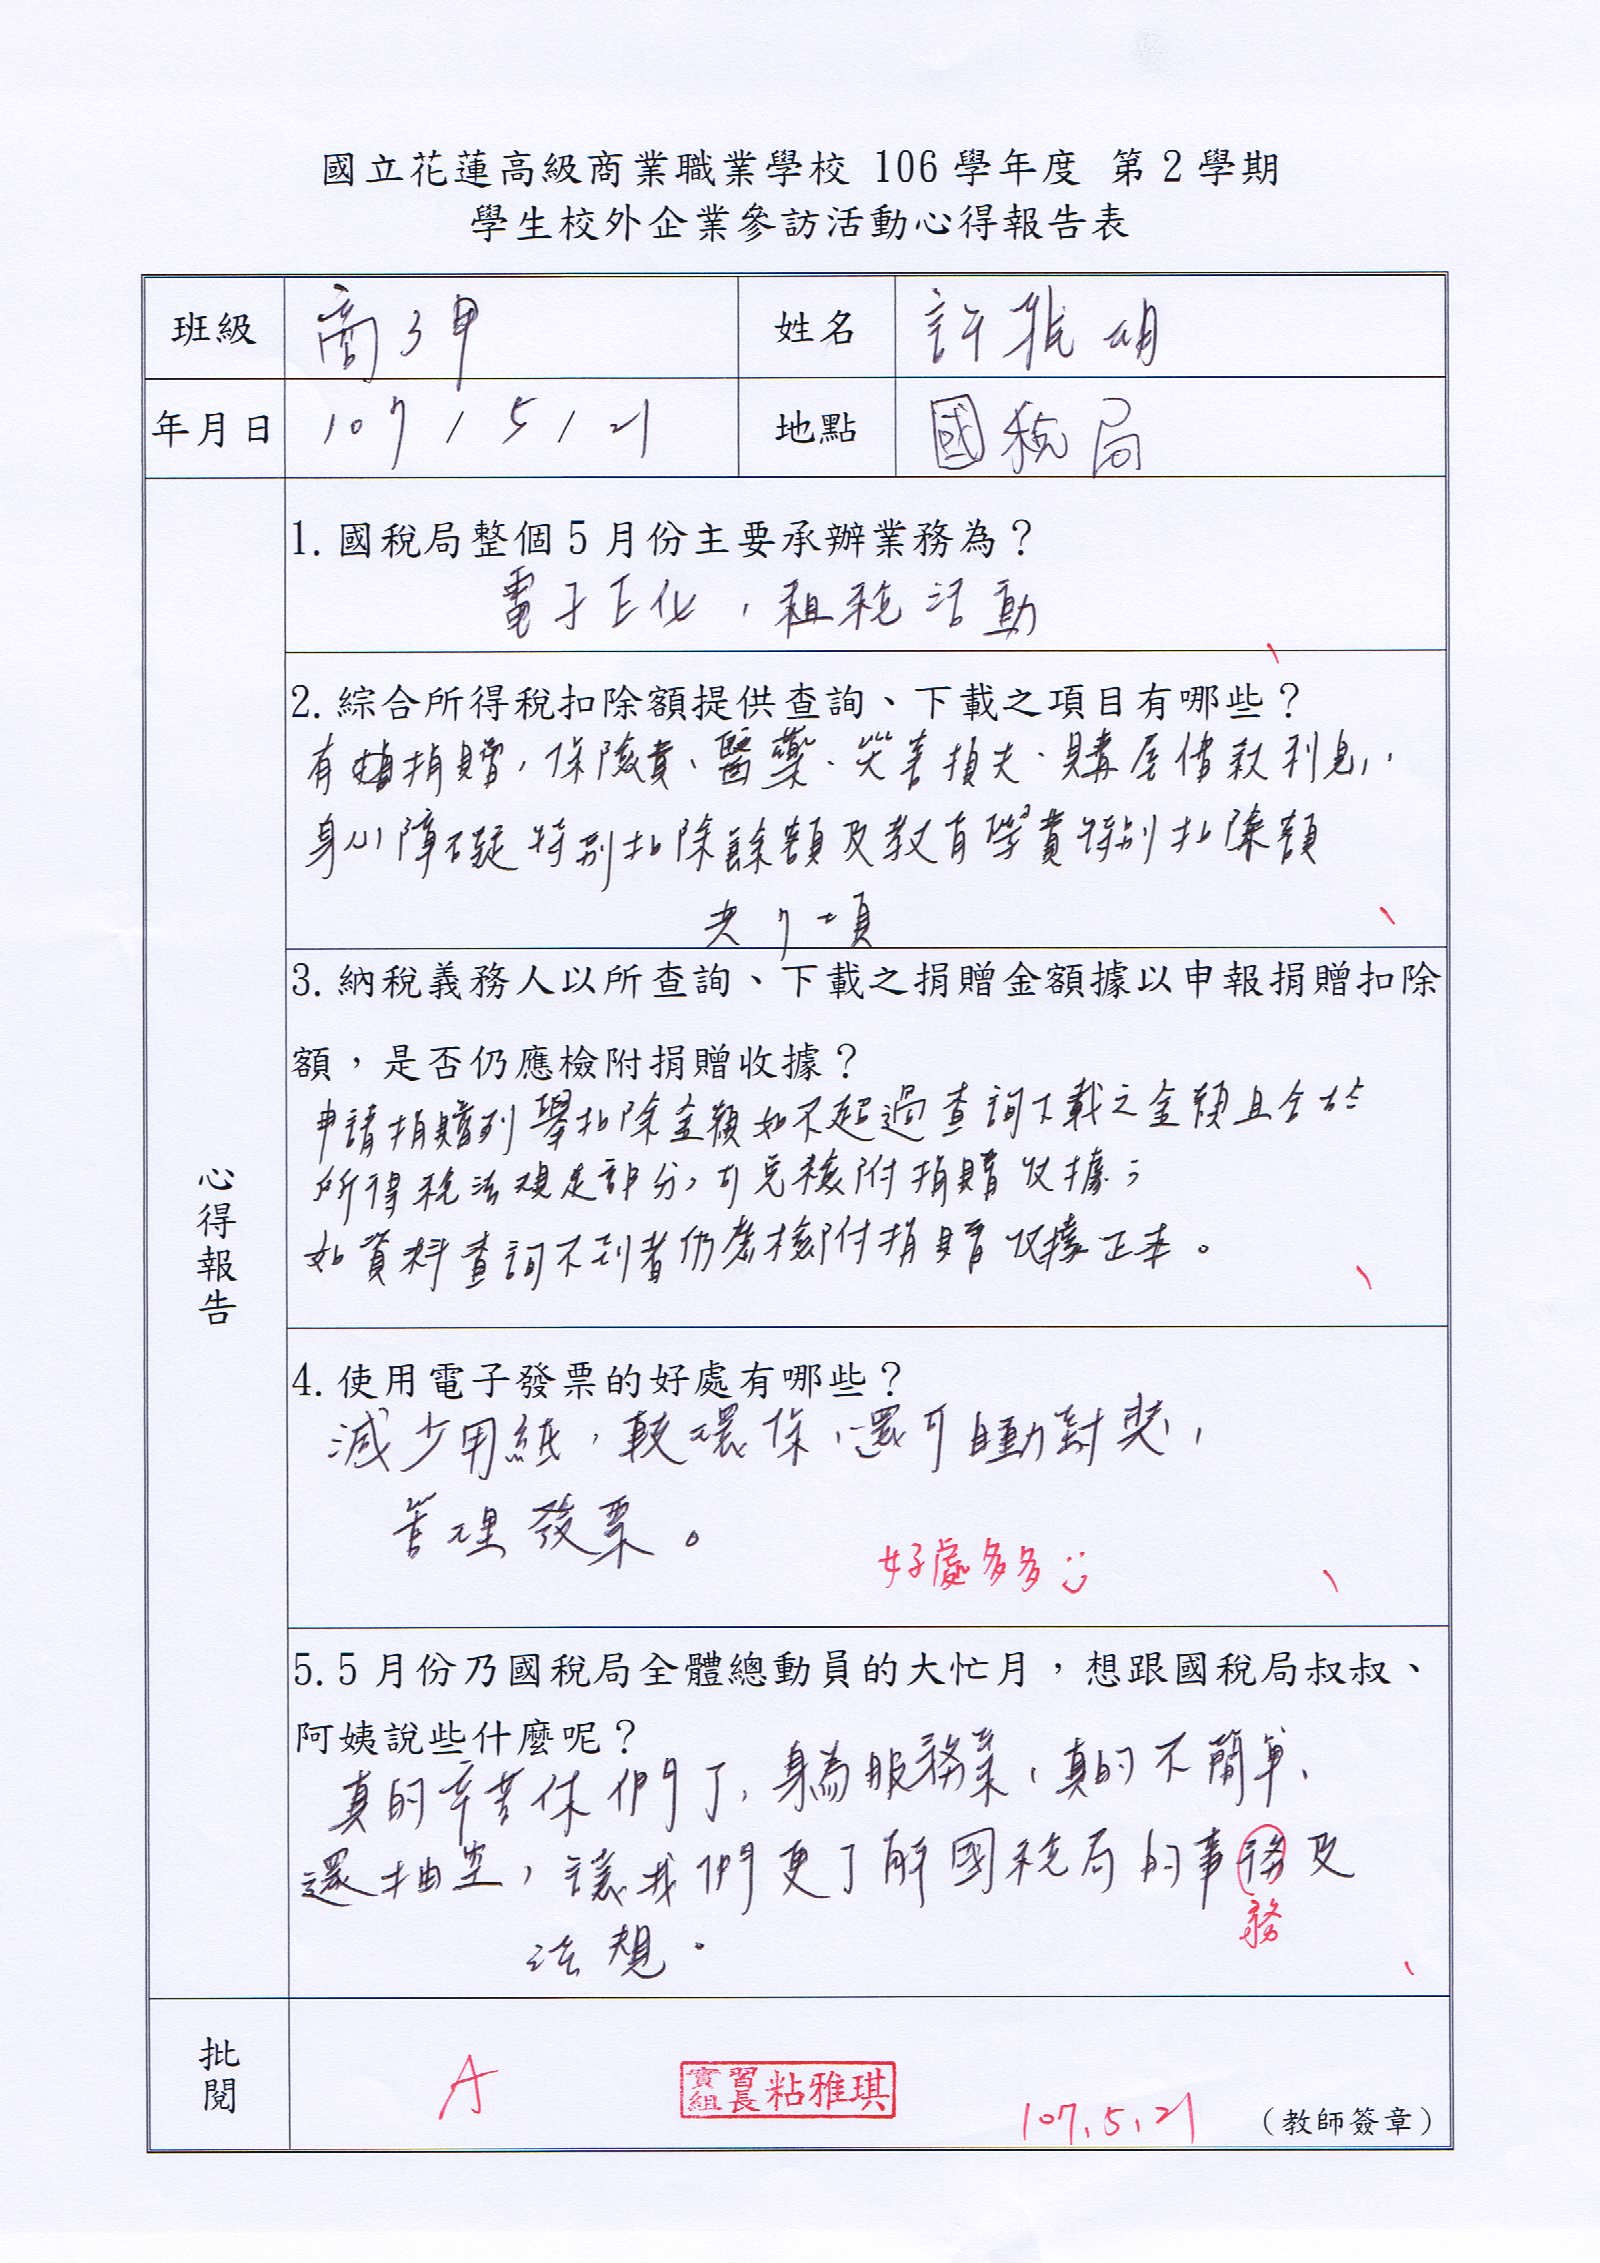 國立花蓮高級商業職業學校 106 學年度 第 2 學期
學生校外企業參訪活動心得報告表
班級 商3甲 姓名 許雅
年月日 107/5/21 地點 國稅局
心得報告
1. 國稅局整個 5 月份主要承辦業務為？
電子E化，租稅活動
2. 綜合所得稅扣除額提供查詢、下載之項目有哪些？
有捐贈，保險費、醫藥、災害損失、購屋借款利息，
身心障礙特別扣除餘額及教育學費特別扣除額
共7項
3. 納稅義務人以所查詢、下載之捐贈金額據以申報捐贈扣除
額，是否仍應檢附捐贈收據？
申請捐贈列舉扣除金額如不超過查詢下載之金額且合於
所得稅法規定部分，可免檢附捐贈收據；
如資料查詢不到者仍應檢附捐贈收據正本。
4. 使用電子發票的好處有哪些？
減少用紙，較環保，還可自動對獎，
管理發票。
好處多多
5. 5 月份乃國稅局全體總動員的大忙月，想跟國稅局叔叔、
阿姨說些什麼呢？
真的辛苦你們了，身為服務業，真的不簡單、
還抽空，讓我們更了解國稅局的事務及
務
法規。
批閱
A
實習組長 粘雅琪
107.5.21
（教師簽章）